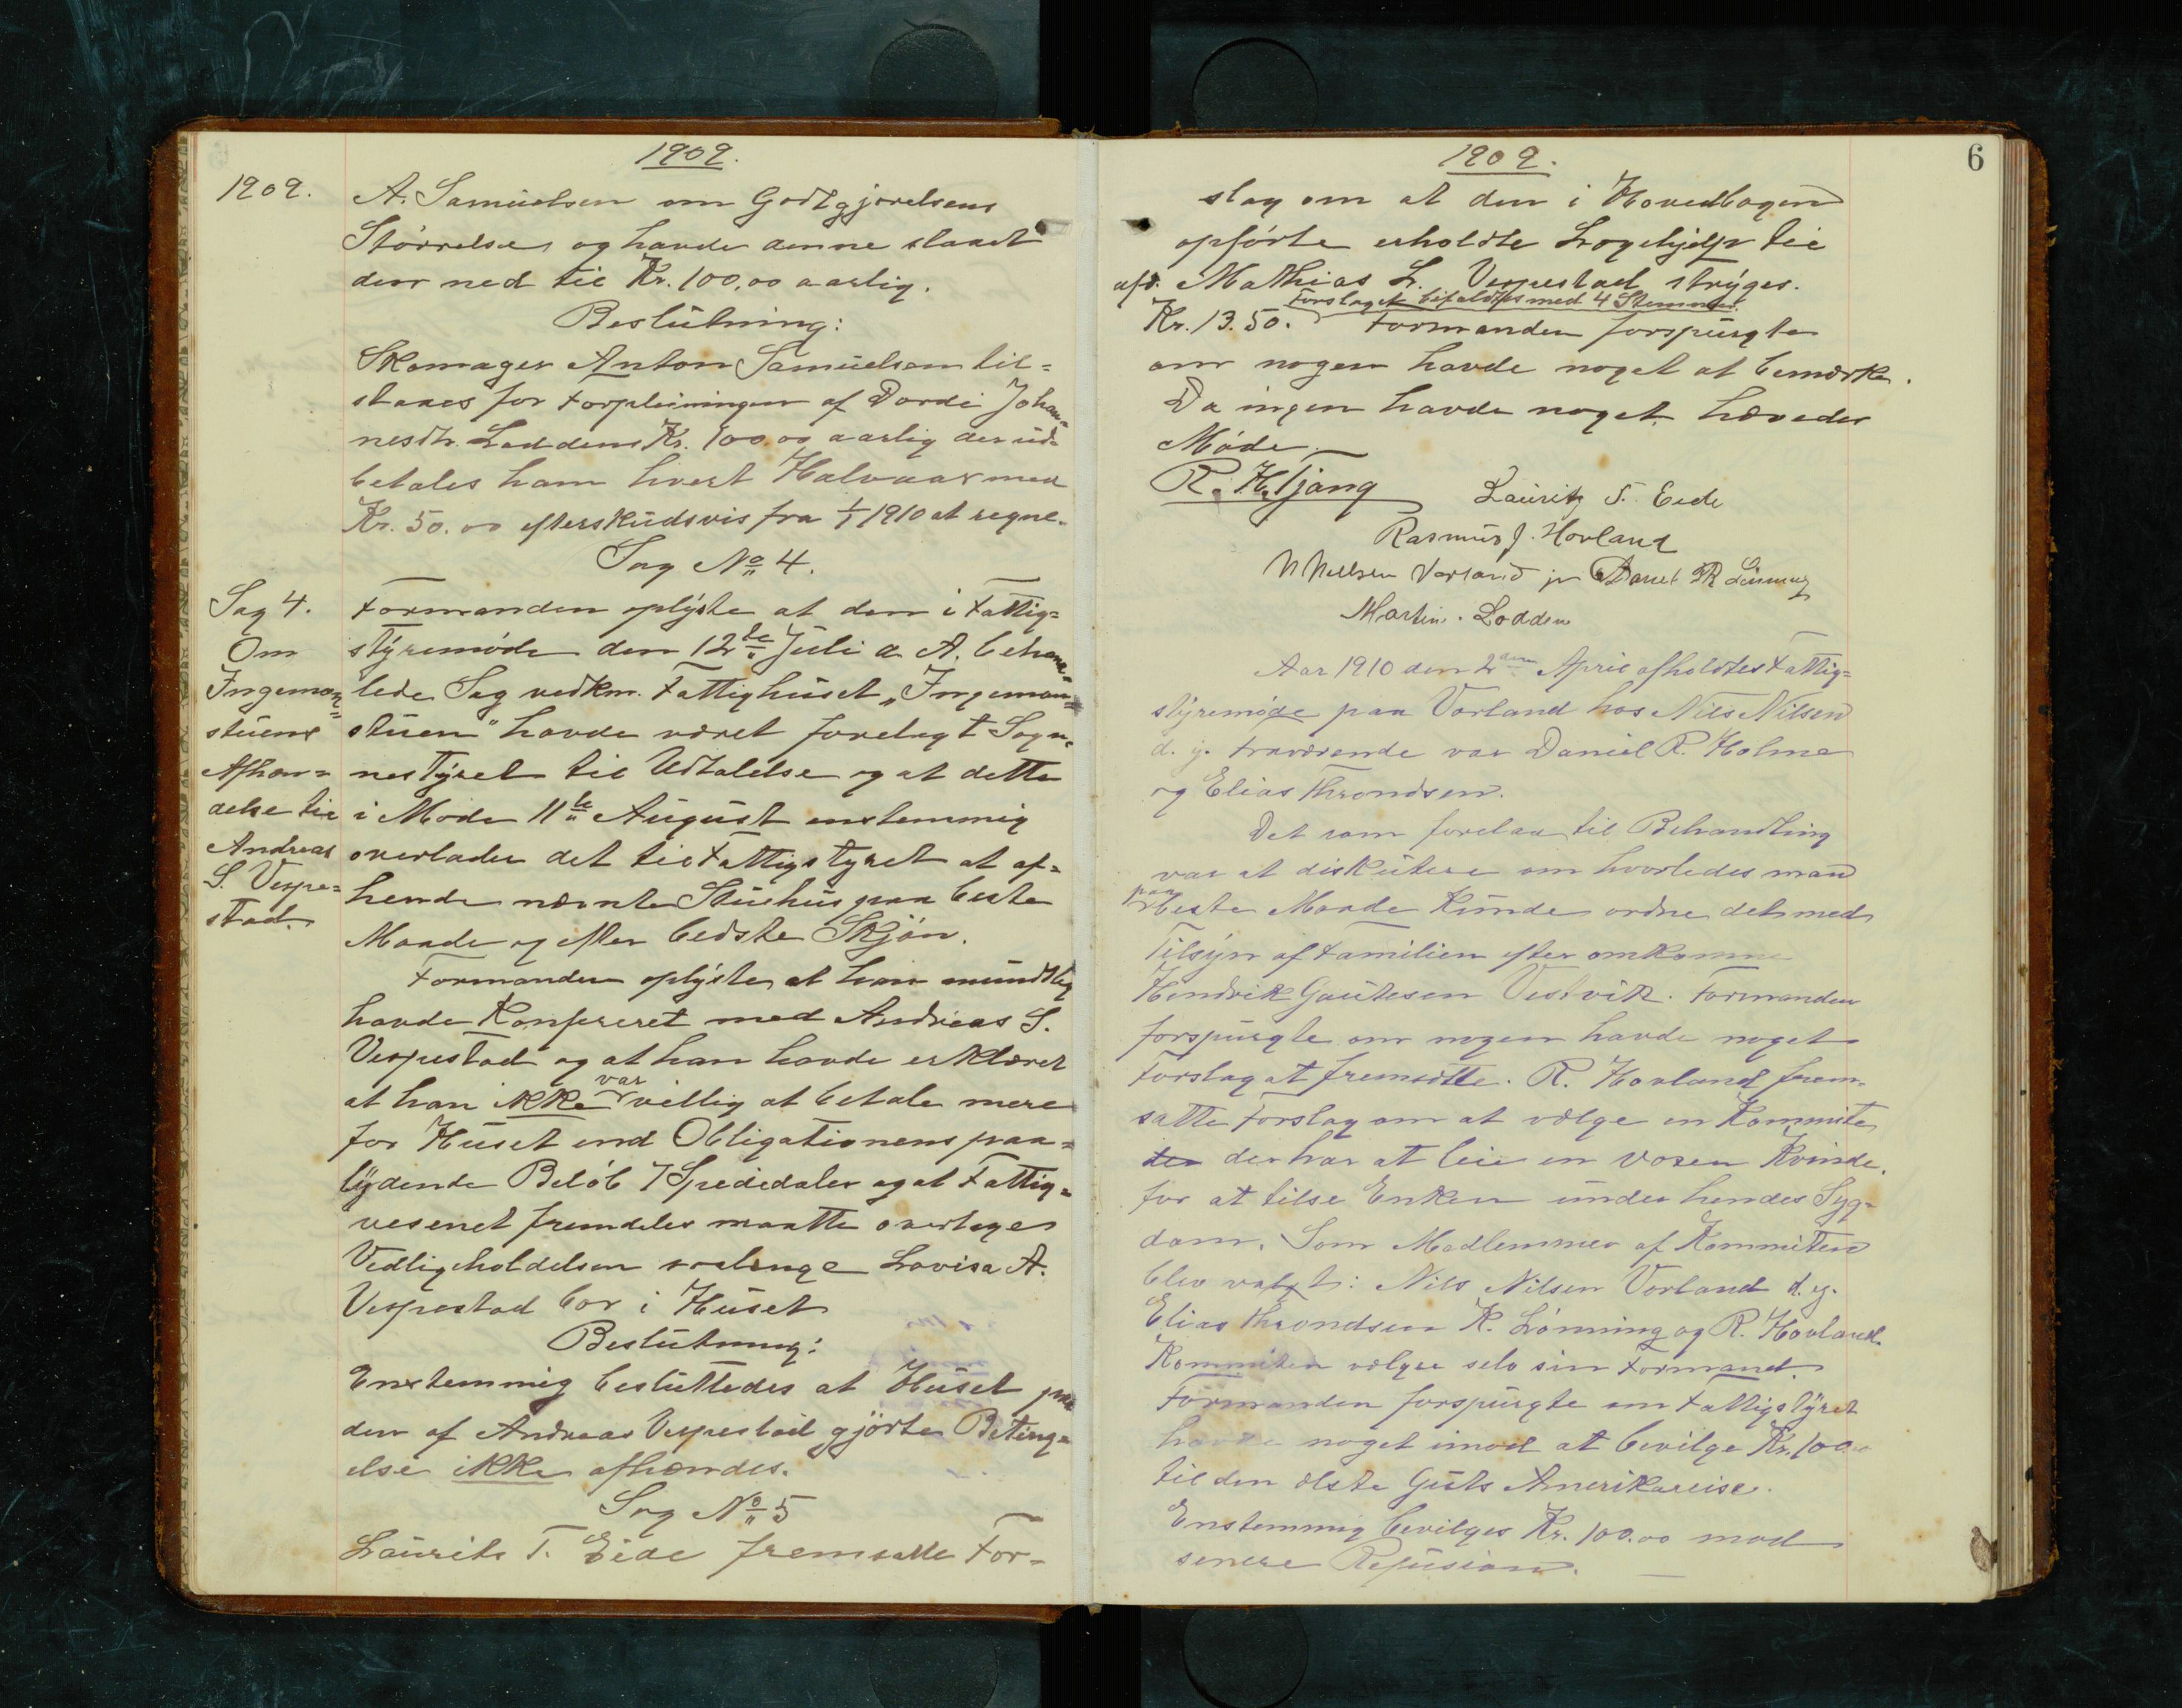 1909.
1909.
A. Samuelsen om Godtgjørelsens
Størrelse og havde denne slaaet
den ned til Kr. 100,00 aarlig.
Beslutning:
Skomager Anton Samuelsen til=
staaes for Forpleiningen af Dordi Johan=
nesdtr. Loddens Kr. 100.00 aarlig der ud=
betales ham hvert Halvaar med
Kr. 50.00 efterskudsvis fra 1/1 1910 at regne.
Sag No 4.
Sag 4.
Om
Ingeman=
stuens
Afhæn=
delse til
Andreas
S. Vespe=
stad.
Formanden oplyste at den i Fattig=
styremøde den 12te Juli d. A. behand=
lede Sag vedkm. Fattighuset „Ingeman=
stuen" havde været forelagt Sog=
nestyret til Udtalelse og at dette
i Møde 11te August enstemmig
overlader det til Fattigstyret at af=
hende nævnte Stuehus paa beste
Maade og efter bedste Skjøn.
Formanden oplyste at han mundtlig
havde Konfereret med Andreas S.
Vespestad og at han havde erklæret
at han ikke var villig at betale mere
for Huset end Obligationens paa=
lydende Beløb 7 Speciedaler og at Fattig=
vesenet fremdeles maatte overtage
Vedligeholdelsen saalenge Lovisa A.
Vespestad bor i Huset
Beslutning:
Enstemmig besluttedes at Huset paa
den af Andreas Vespestad gjørte Beting=
else ikke afhændes.
Sag No 5
Laurits T. Eide fremsatte For=
1909.
6
slag om at den i Hovedbogen
opførte erholdte Lægehjælp til
afd. Mathias L. Vespestad stryges.
Forslaget bifaldtes med 4 Stemmer.
Kr. 13.50. Formanden forspurgte
om nogen havde noget at bemærke.
Da ingen havde noget hævedes
Møde.
R. H. Tjong
Lauritz T. Eide
Rasmus J. Hovland
N Nielsen Vorland jr Daniel R Lønning
Martin. Lodden
Aar 1910 den 2den April afholdtes Fattig=
styremøde paa Vorland hos Nils Nilsen
d. y. Fraværende var Daniel R. Holme
og Elias Throndsen.
Det som forelaa til Behandling
var at diskutere om hvorledes man
paa beste Maade kunde ordne det med
Tilsyn af Familien efter omkomne
Hendrik Gautesen Vestvik. Formanden
forspurgte om nogen havde noget
Forslag at fremsætte. R. Hovland frem=
satte Forslag om at vælge en Kommite
der har at leie en voxen Kvinde
for at tilse Enken under hendes Syg=
dom. Som Medlemmer af Kommiteen
blev valgt: Nils Nilsen Vorland d. y.
Elias Throndsen K. Lønning og R. Hovland.
Kommiteen vælger selv sin Formand.
Formanden forspurgte om Fattigstyret
havde noget imod at bevilge Kr. 100.00
til den ælste Guts Amerikareise.
Enstemmig bevilges Kr. 100.00 mod
senere Refusion.